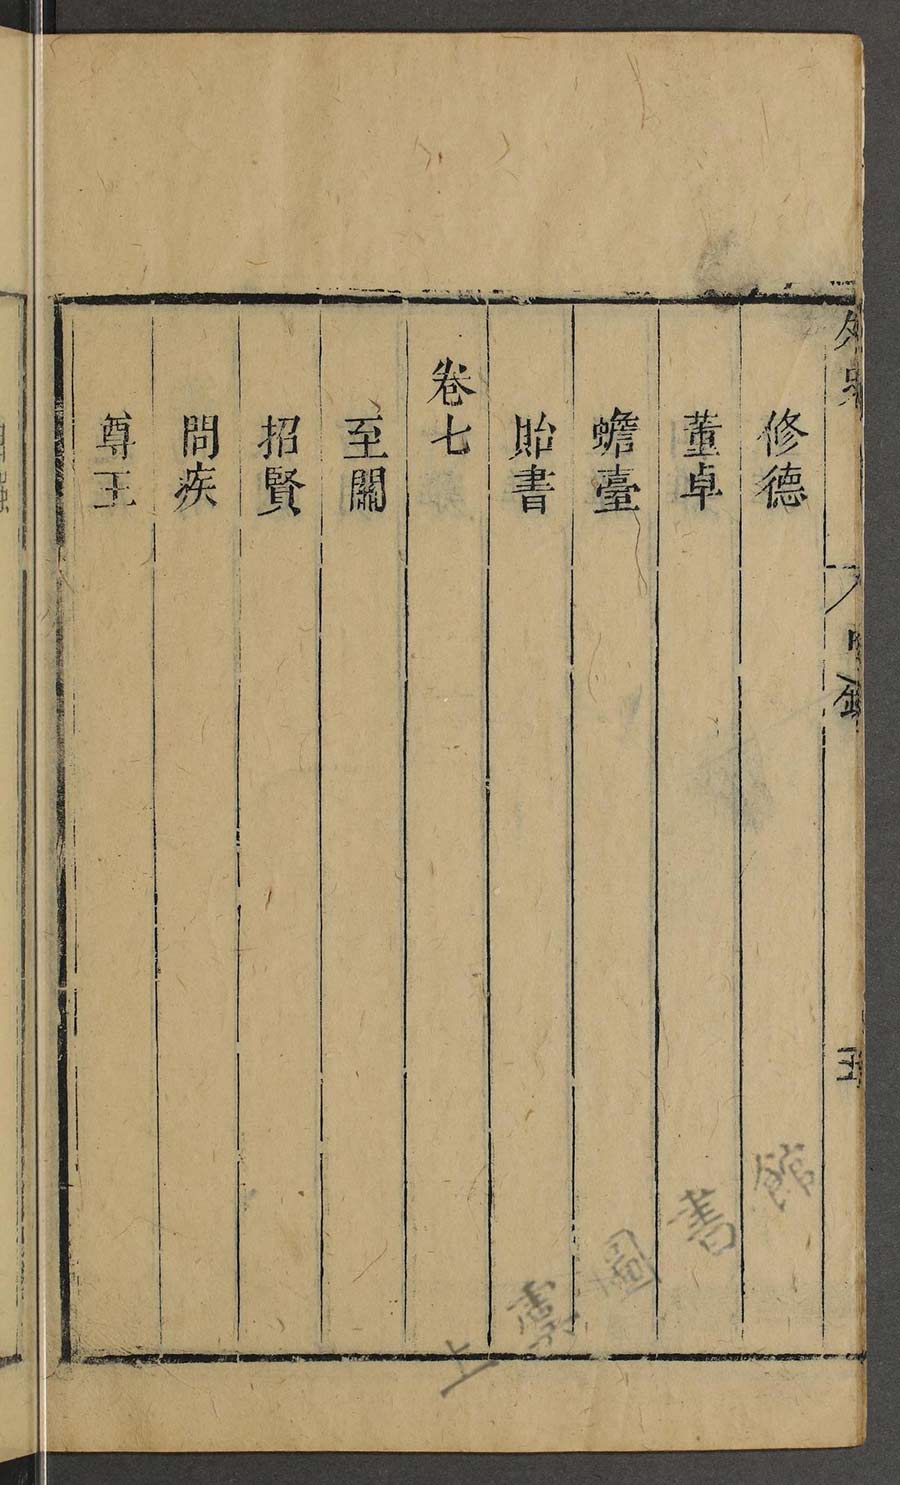 修德
董卓
蟾臺
貽書
卷七
至關
招賢
問疾
尊王
目錄
上雲圖書館